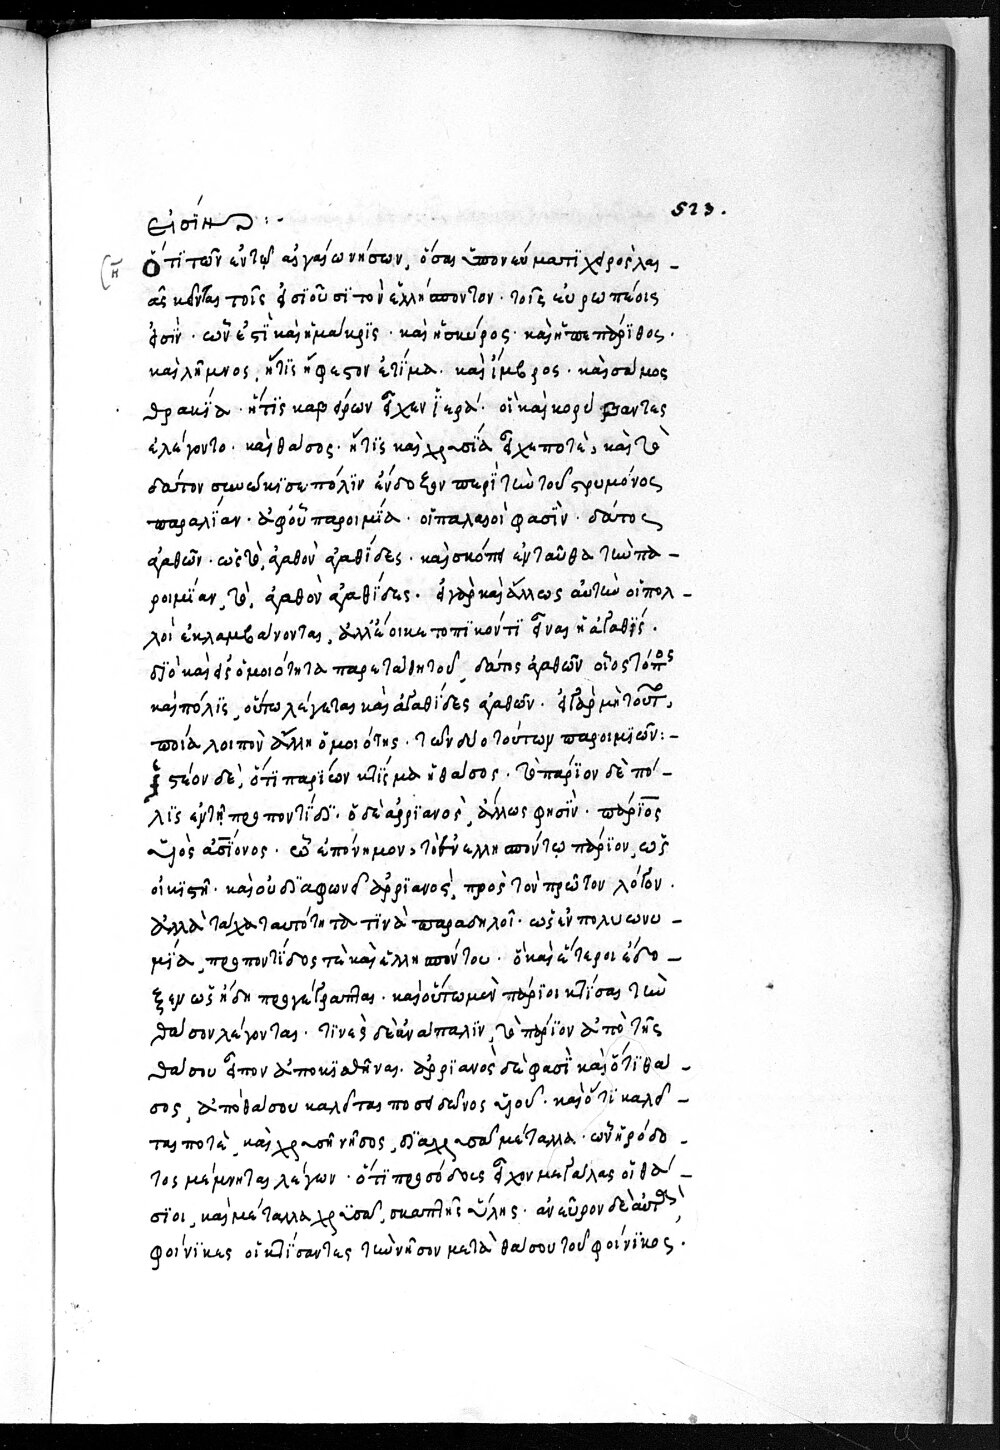 523.
εἰσίν :-
Ὅτι τῶν ἐν τῷ αἰγαίω νήσων, ὅσαι ὑπονεύματι χέρσος λαι-
αῖς κεῖνται τοῖς εἰσιοῦσι τὸν ἑλλήσποντον· τοῖς εὐρωπαίοις
εἰσὶν· ὧν ἐστὶ καὶ ἡ μάκρις· καὶ ἡ σκύρος· καὶ ἡ πεπάρηθος·
καὶ λῆμνος, ἥτις ἥφαιστον ἐτίμα· καὶ ἴμβρος· καὶ σάμος
θρακία· ἥτις καβείρων εἶχεν ἱερά· οἳ καὶ κορύβαντες
ἐλέγοντο· καὶ θάσος· ἥτις καὶ χρυσία εἶχε ποτὲ, καὶ τὸ
δάτον συνώκισε πόλιν ἔνδοξον περὶ τὴν τοῦ στρυμόνος
παραλίαν· ἀφ' οὗ παροιμία· οἱ παλαιοὶ φασὶν· δάτος
ἀγαθῶν· ὡς τὸ, ἀγαθὸν ἀγαθίδες· καὶ σκόπει ἐνταῦθα τὴν πα-
ροιμίαν, τὸ, ἀγαθὸν ἀγαθίδες· εἰ γὰρ καὶ ἄλλως αὐτὴν οἱ πολ-
λοὶ ἐκλαμβάνονται, ἀλλ' ἔοικε τοπικόν τι εἶναι ἡ ἀγαθίς·
διὸ καὶ εἰς ὁμοιότητα παρετέθη τοῦ, δάτης ἀγαθῶν οἷος τόπος
καὶ πόλις, οὕτω λέγεται καὶ ἀγαθίδες ἀγαθῶν· εἰ γὰρ μὴ τοῦτο,
ποία λοιπὸν ἄλλη ὁμοιότης· τῶν δύο τούτων παροιμιῶν:-
Ἰστέον δὲ, ὅτι παρίων κτίσμα ἡ θάσος· τὸ πάριον δὲ πό-
λις ἐν τῇ προποντίδι· ὁ δὲ ἀρριανὸς, ἄλλως φησὶν· πάριος
υἱὸς ἰασίονος· οὗ ἐπόνημον, τὸ ἐν ἑλλησπόντῳ πάριον, ὡς
οἰκιστῇ· καὶ οὐ διαφωνεῖ ἀρριανὸς, πρὸς τὸν πρῶτον λόγον·
ἀλλὰ τάχα ταυτότητα τινὰ παραδηλοῖ· ὡς ἐν πολυωνυ-
μία, προποντίδος τὲ καὶ ἑλλησπόντου· ὃ καὶ ἕτεροι ἔδο-
ξεν ὡς ἤδη προγέγραπται· καὶ οὕτω μὲν πάριοι κτίσαι τὴν
θάσον λέγονται· τινὲς δὲ ἀνάπαλιν, τὸ πάριον ἀπὸ τῆς
θάσου εἶπον ἀποικισθῆναι· ἀρριανὸς δὲ φασὶ καὶ ὅτι θά-
σος, ἀπὸ θάσου καλεῖται ποσειδῶνος υἱοῦ· καὶ ὅτι καλεῖ-
ται ποτὲ, καὶ χρυσῆ νῆσος, διὰ χρυσᾶ μέταλλα· ὧν ἡρόδο-
τος μέμνηται λέγων· ὅτι προσόδους εἶχον μεγάλας οἱ θά-
σιοι, καὶ μέταλλα χρυσᾶ, σκαπτῆς ὕλης· ἀνεῦρον δὲ αὐτὰ,
φοίνικες οἱ κτίσαντες τὴν νῆσον μετὰ θάσου τοῦ φοίνικος·